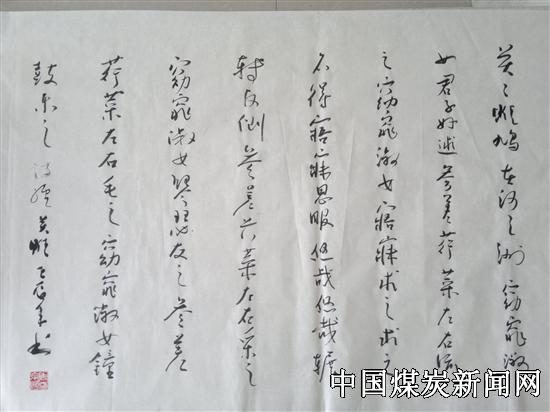 关々雎鸠在河之洲窈窕淑
女君子好逑参差荇菜左右流
之窈窕淑女寤寐求之求之
不得寤寐思服悠哉悠哉辗
转反侧参差荇菜左右采之
窈窕淑女琴瑟友之参差
荇菜左右毛之窈窕淑女钟
鼓乐之 诗经 关雎 辰年书
中国煤炭新闻网